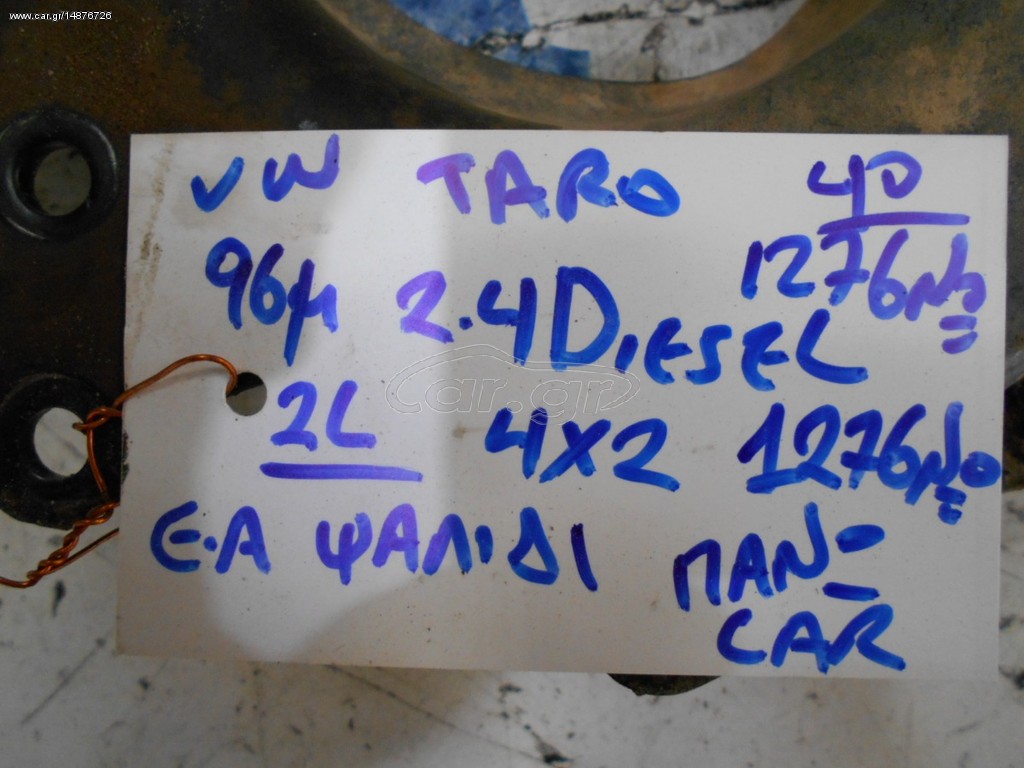 www.car.gr/14876726
VW TARO 40
1276
96μ 2.4 DIESEL
car.gr
2L 4X2 1276
Ε.Α ΨΑΛΙΔΙ ΠΑΝ=
CAR